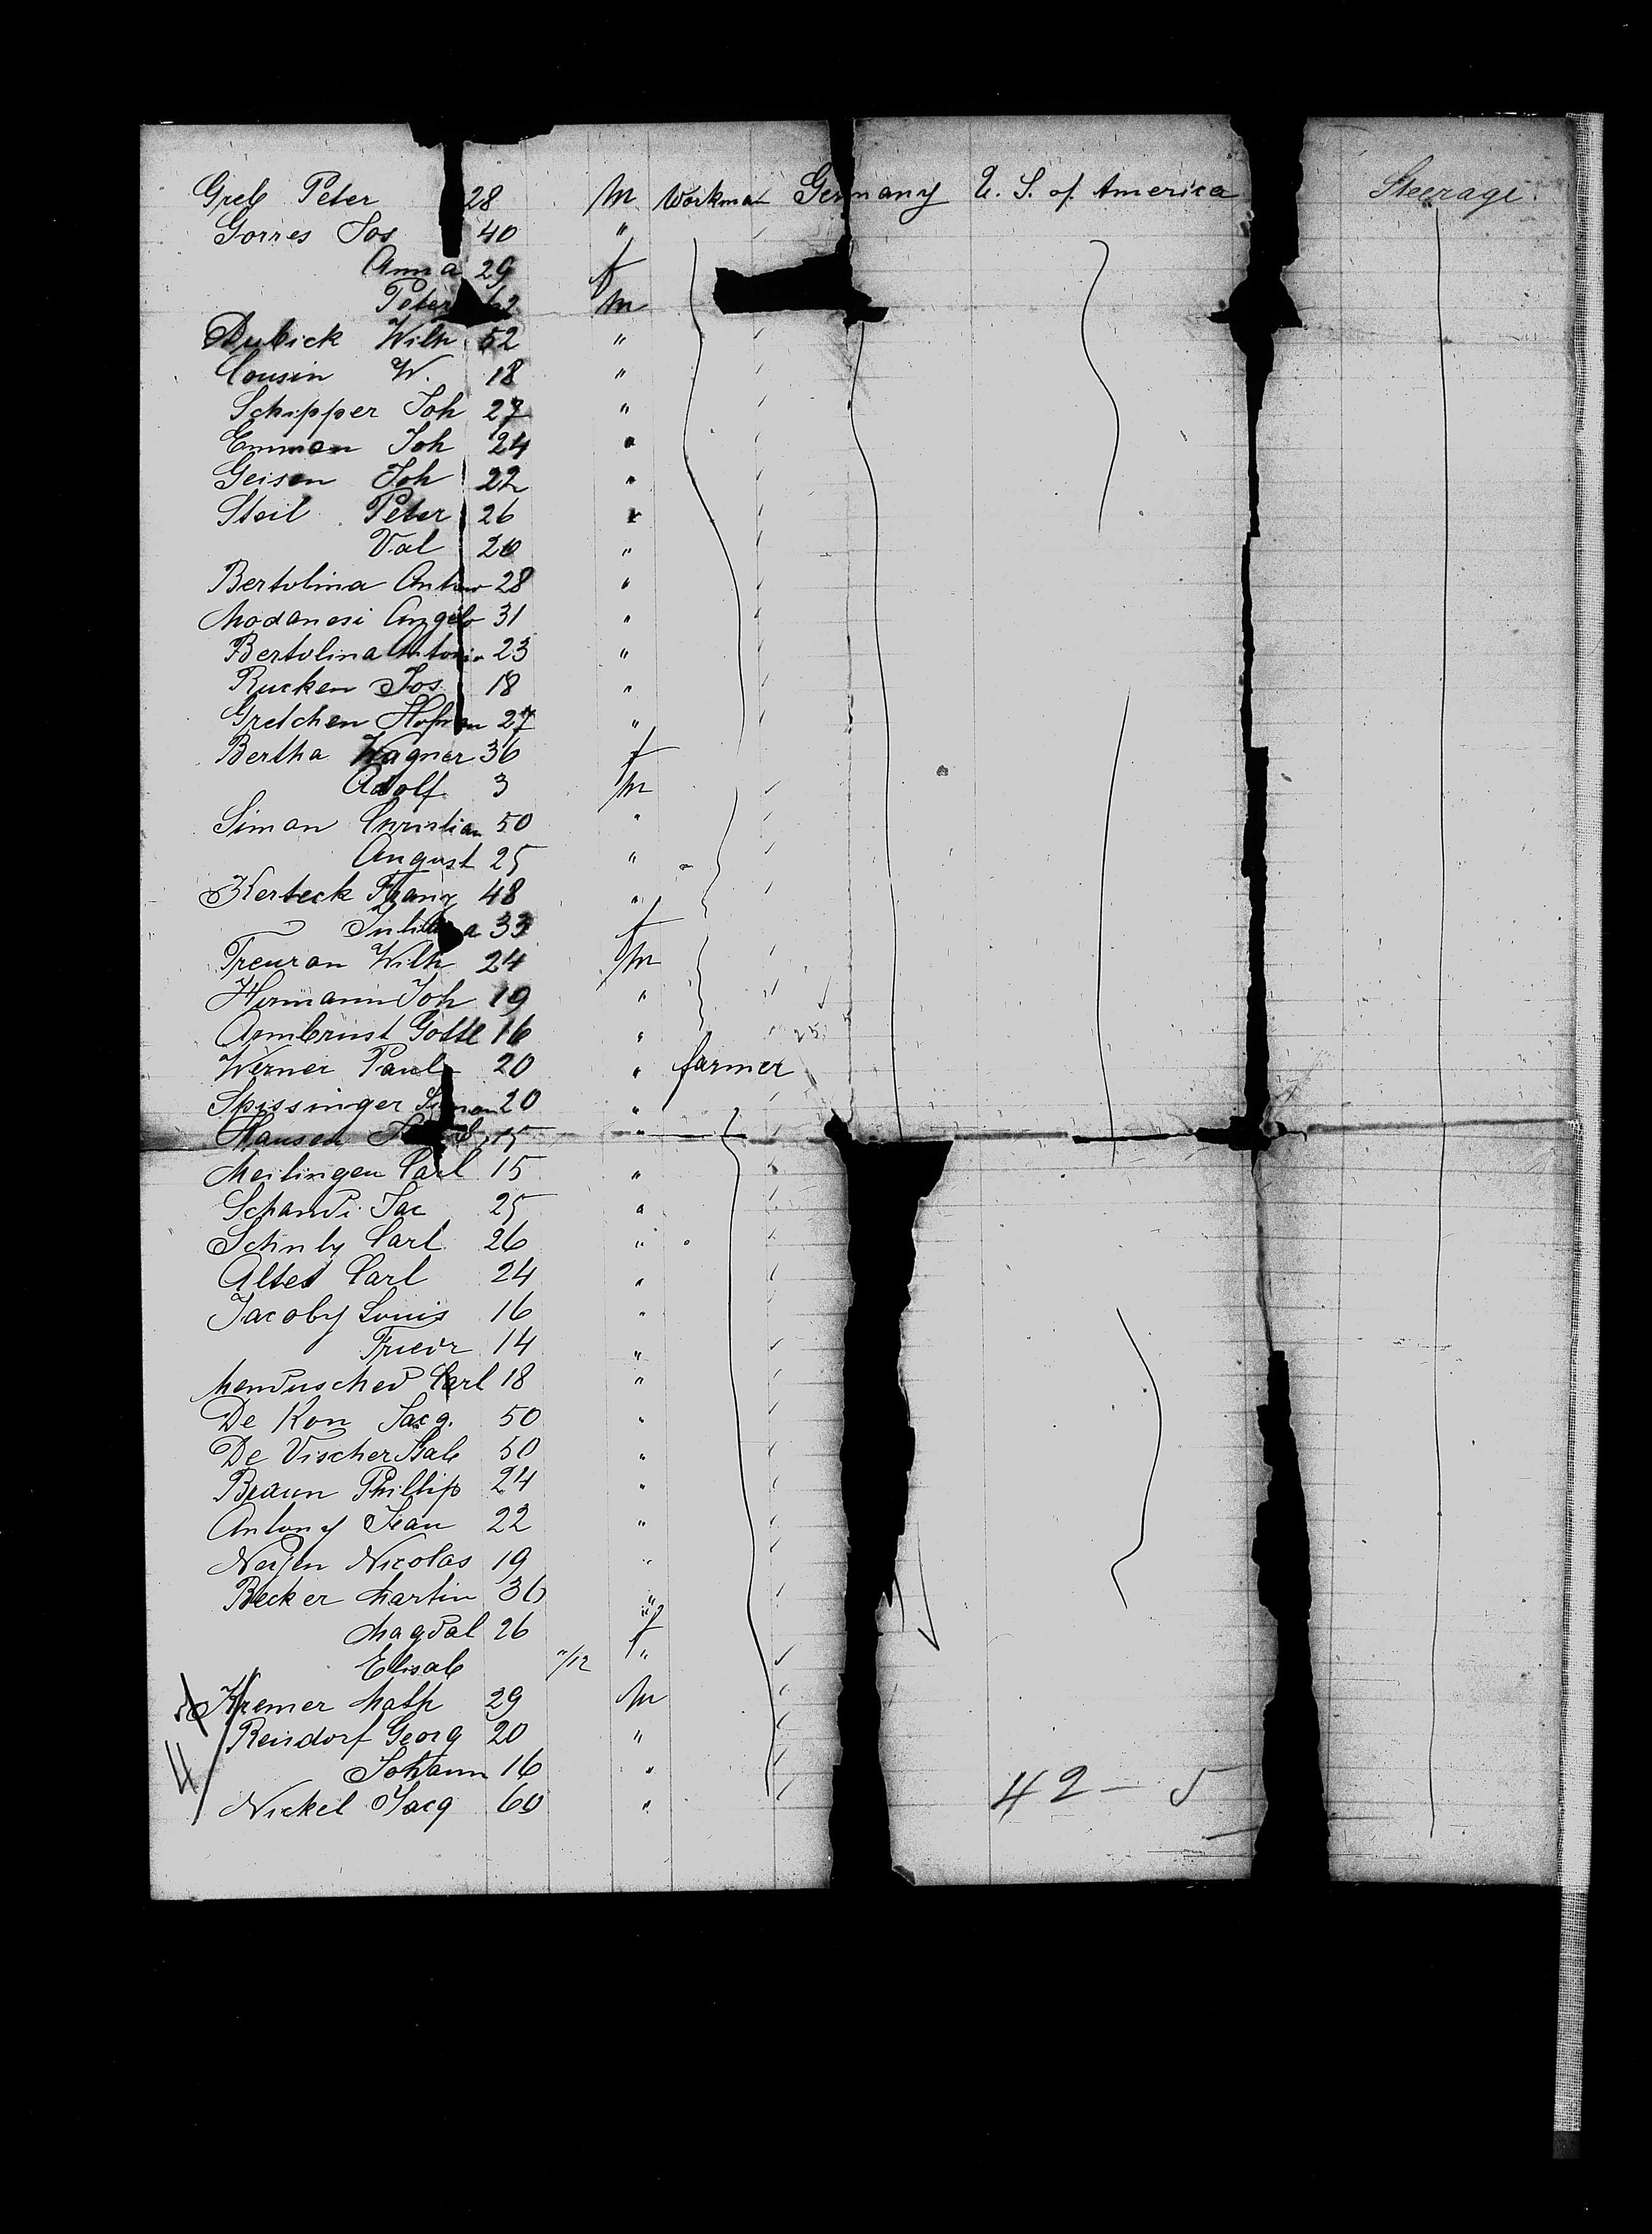 Greb Peter 28 m Workman Germany U. S. of America Steerage
Gorres Jos 40 "
Anna 29 f
Peter m
Dubick Wilh 52 "
Cousin W. 18 "
Schipper Joh 27 "
Emman Joh 24 "
Geisen Joh 22 "
Steil Peter 26 "
Val 20 "
Bertolina Anton 28 "
Modanesi Angelo 31 "
Bertolina Antonio 23 "
Rucken Jos 18 "
Gretchen Hofman 27 "
Bertha Wagner 36 f
Adolf 3 m
Simon Christian 50 "
August 25 "
Kerbeck Franz 48 "
Juliana 33 f
Treuran Wilh 24 m
Hermann Joh 19 "
Armbrust Gottl 16 "
Werner Paul 20 " farmer
Spissinger Simon 20 "
Hansen 15 "
Meilingen Carl 15 "
Schandi Jac 25 "
Schuly Carl 26 "
Altes Carl 24 "
Jacoby Louis 16 "
Friedr 14 "
Carl 18 "
De Kon Jacq. 50 "
De Vischer Isab 50 "
Braun Phillip 24 "
Antony Jean 22 "
Neyen Nicolas 19 "
Becker Martin 36 "
Magdal 26 f
Elisab 11/12 "
Kremer Math 29 m
Reisdorf Georg 20 "
Johann 16 "
Nickel Jacq 60 "
42 — 5
4